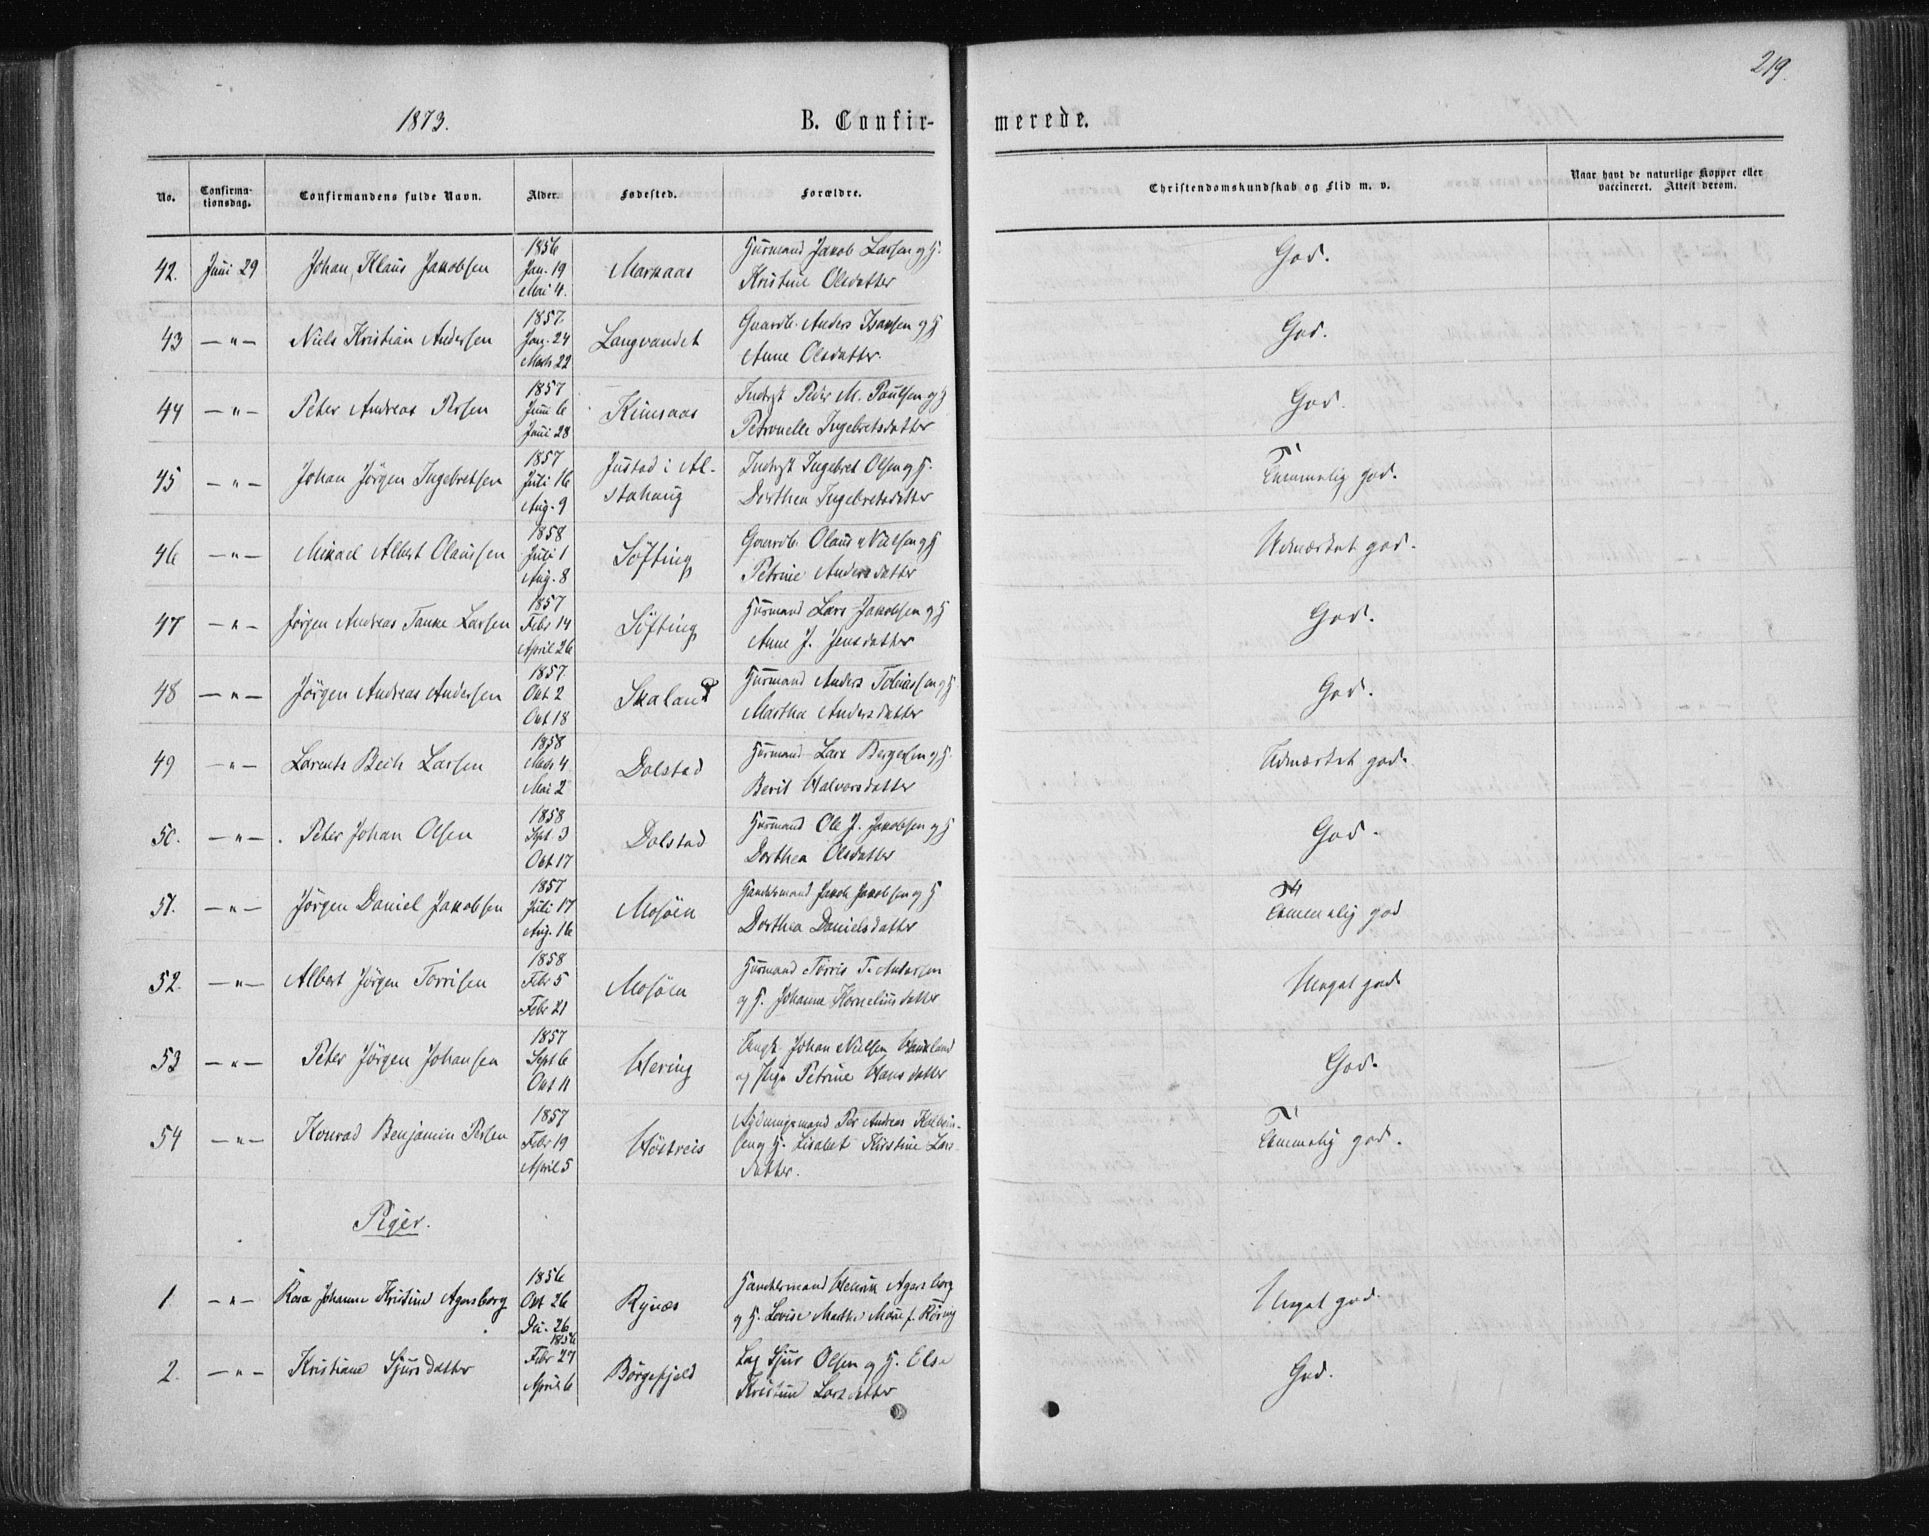 219.
1873.
B. Confirmerede.
No. Confirmationsdag. Confirmandens fulde Navn. Alder. Fødested. Forældre. Christendomskundskab og Flid m. v. Naar havt de naturlige Kopper eller vaccineret. Attest derom.
42. Juni 29 Johan Klaus Jakobsen 1856 Jan. 19 Mai 4. Markaas Husmand Jakob Larsen og H. Kristine Olsdatter God.
43 — " — Niels Kristian Andersen 1857 Jan. 24 Marts 22 Langvandet Gaardb. Anders Isaksen og H Anne Olsdatter. God.
44 — " — Peter Andreas Persen 1857 Juni 6 Juni 28 Kimsaas Inderst Peder M. Paulsen og H Petronelle Ingebretsdatter God.
45 — " — Johan Jörgen Ingebretsen 1857 Juli 16 Aug. 9 Justad i Alstahaug Inderst Ingebret Olsen og H. Dorthea Ingebretsdatter Temmelig god.
46 — " — Mikael Albert Olaussen 1858 Juli 1 Aug. 8 Söfting Gaardb. Olaus Nilsen og H Petrine Andersdatter Udmærket god.
47 — " — Jörgen Andreas Tanke Larsen 1857 Febr 14 April 26 Söfting Husmand Lars Jakobsen og H Anne J. Jensdatter God.
48 — " — Jörgen Andreas Andersen 1857 Okt 2 Okt 18 Skaland Husmand Anders Tobiassen og H. Martha Andersdatter God.
49 — " — Lorents Bech Larsen 1858 Marts 4 Mai 2 Dolstad Husmand Lars Bergersen og H. Berit Halvorsdatter Udmærket god.
50. — " — Peter Johan Olsen 1858 Sept. 3 Okt 17 Dolstad Husmand Ole J. Jakobsen og H Dorthea Olsdatter God.
51. — " — Jörgen Daniel Jakobsen 1857 Juli 17 Aug. 16 Mosöen Handelsmand Jakob Jakobsen og H Dorthea Danielsdatter Temmelig god
52. — " — Albert Jörgen Torrisen 1858 Febr 5 Febr 21 Mosöen Husmand Torris T. Andersen og H. Johanna Korneliusdatter Meget god
53 — " — Peter Jörgen Johansen 1857 Sept 6 Okt 11 Hering Ungk. Johan Nielsen og Pige Petrine Hansdatter God.
54 — " — Konrad Benjamin Persen 1857 Febr 19 April 5 Höitreis Rydningsmand Per Andreas og H. Lisabet Kirstine Larsdatter. Temmelig god.
Piger.
1. — " — Rosa Johanne Kristine Agersborg 1856 Okt 26 De. 26 Rynes Handelsmand Henrik Agersborg og H. Lovise Marthe Marie f. Röring Meget god.
2. — " — Kristiane Sjursdatter 1856 Febr 27 April 6 Börgefjeld Lap Sjur Olsen og H. Else Kristine Larsdatter God.